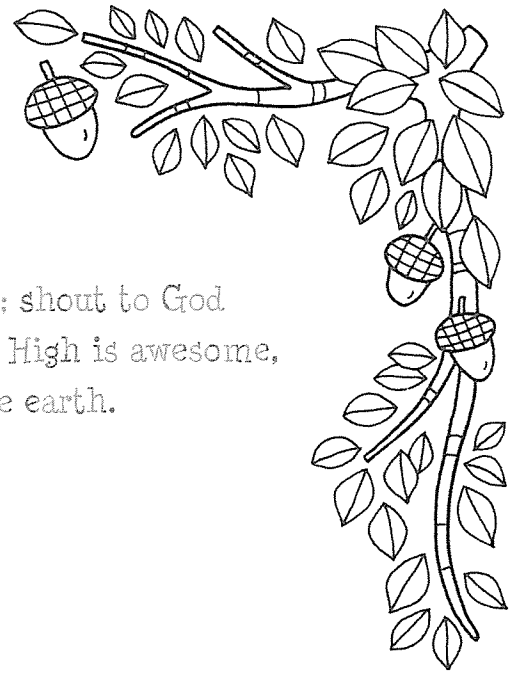 ; shout to God
High is awesome,
e earth.